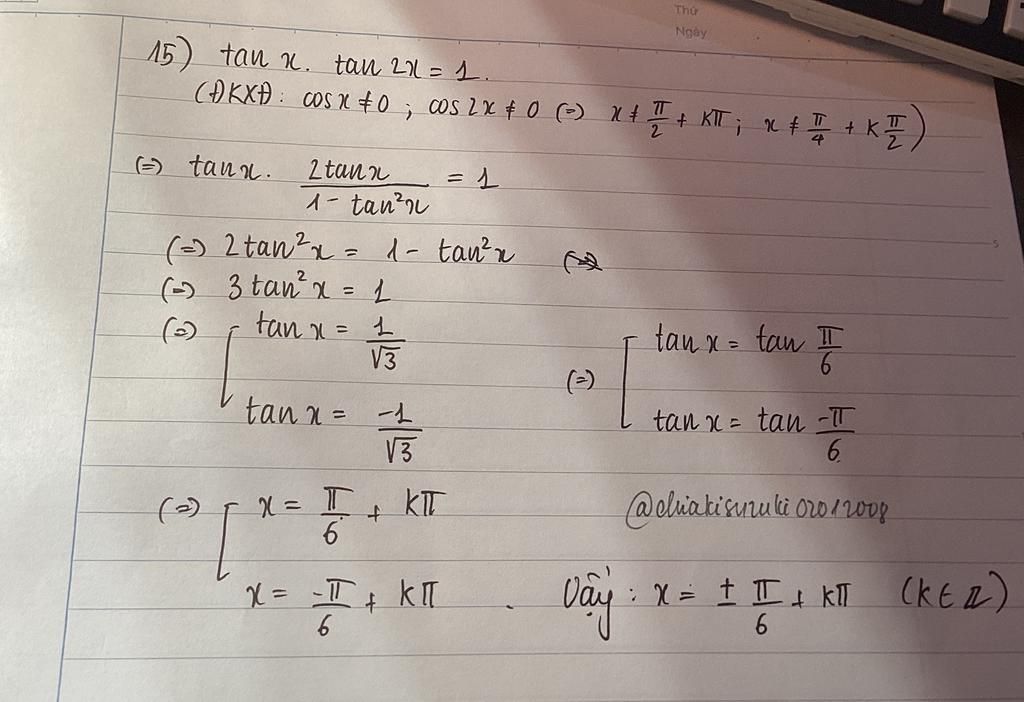 Thứ
Ngày
15) tan x. tan 2x = 1.
(ĐKXĐ: cosx ≠ 0 ; cos 2x ≠ 0 (=) x ≠ π/2 + kπ; x ≠ π/4 + k π/2)
(=) tanx. 2tanx/(1 - tan²x) = 1
(=) 2tan²x = 1 - tan²x
(=) 3tan²x = 1
(=) [ tan x = 1/√3
tan x = -1/√3
(=) [ tan x = tan π/6
tan x = tan -π/6
(=) [ x = π/6 + kπ
x = -π/6 + kπ
@chiakisuzuki02012008
. Vậy: x = ± π/6 + kπ (k ∈ Z)
5